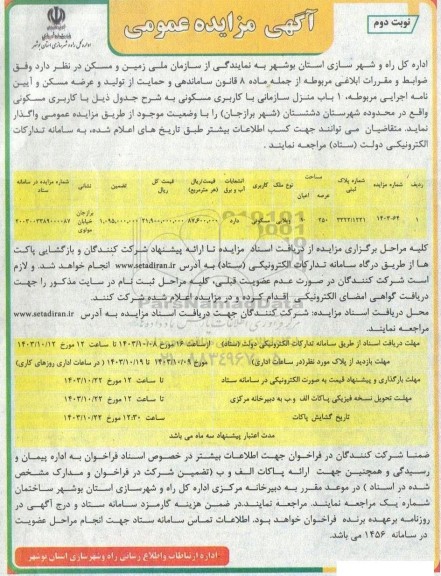 نوبت دوم
آگهی مزایده عمومی
اداره کل راه و شهرسازی استان بوشهر
اداره کل راه و شهر سازی استان بوشهر به نمایندگی از سازمان ملی زمین و مسکن در نظر دارد وفق
ضوابط و مقررات ابلاغی مربوطه از جمله ماده ۸ قانون ساماندهی و حمایت از تولید و عرضه مسکن و آیین
نامه اجرایی مربوطه، ۱ باب منزل سازمانی با کاربری مسکونی به شرح جدول ذیل با کاربری مسکونی
واقع در محدوده شهرستان دشتستان (شهر برازجان) را با وضعیت موجود از طریق مزایده عمومی واگذار
نماید. متقاضیان می توانند جهت کسب اطلاعات بیشتر طبق تاریخ های اعلام شده، به سامانه تدارکات
الکترونیکی دولت (ستاد) مراجعه نمایند.
ردیف شماره مزایده شماره پلاک ثبتی مساحت عرصه اعیان نوع ملک کاربری انشعابات آب و برق قیمت/ریال (هر مترمربع) قیمت کل ریال تضمین نشانی شماره مزایده در سامانه ستاد
۱ ۱۴۰۳-۶۴ ۳۳۲۲/۱۲۲۱ ۲۵۰ مسکونی دارد ۸۷,۶۰۰,۰۰۰ ۲۱,۹۰۰,۰۰۰,۰۰۰ ۱,۰۹۵,۰۰۰,۰۰۰ برازجان خیابان مولوی ۲۰۰۳۰۰۳۳۸۹۰۰۰۰۸۷
کلیه مراحل برگزاری مزایده از دریافت اسناد مزایده تا ارائه پیشنهاد شرکت کنندگان و بازگشایی پاکت
ها از طریق درگاه سامانه تدارکات الکترونیکی (ستاد) به آدرس www.setadiran.ir انجام خواهد شد. و لازم
است شرکت کنندگان در صورت عدم عضویت قبلی، کلیه مراحل ثبت نام در سایت مذکور را جهت
دریافت گواهی امضای الکترونیکی اقدام کرده و در مزایده اعلام شده شرکت کنند.
محل دریافت اسناد مزایده: شرکت کنندگان جهت دریافت اسناد مزایده به آدرس www.setadiran.ir
مراجعه نمایند.
مهلت دریافت اسناد از طریق سامانه تدارکات الکترونیکی دولت (ستاد) از ساعت ۱۶ مورخ ۱۴۰۳/۱۰/۰۸ تا ساعت ۱۲ مورخ ۱۴۰۳/۱۰/۱۲
مهلت بازدید از پلاک مورد نظر (در ساعات اداری) از مورخ ۱۴۰۳/۱۰/۰۹ تا ۱۴۰۳/۱۰/۱۹ (در ساعات اداری روزهای کاری)
مهلت بارگذاری و پیشنهاد قیمت به صورت الکترونیکی در سامانه ستاد تا ساعت ۱۲ مورخ ۱۴۰۳/۱۰/۲۲
مهلت تحویل نسخه فیزیکی پاکات الف و ب به دبیرخانه مرکزی تا ساعت ۱۲ مورخ ۱۴۰۳/۱۰/۲۲
تاریخ گشایش پاکات ساعت ۱۲:۳۰ مورخ ۱۴۰۳/۱۰/۲۲
مدت اعتبار پیشنهاد سه ماه می باشد
ضمنا شرکت کنندگان در فراخوان جهت اطلاعات بیشتر در خصوص اسناد فراخوان به اداره پیمان و
رسیدگی و همچنین جهت ارائه پاکات الف و ب (تضمین شرکت در فراخوان و مدارک مشخص
شده در اسناد) در موعد مقرر به دبیرخانه مرکزی اداره کل راه و شهرسازی استان بوشهر ساختمان
شماره یک مراجعه نمایند. مراجعه نمایند.در ضمن هزینه کارمزد سامانه ستاد و درج آگهی در
روزنامه برعهده برنده فراخوان خواهد بود. اطلاعات تماس سامانه ستاد جهت انجام مراحل عضویت
در سامانه ۱۴۵۶ می باشد.
اداره ارتباطات واطلاع رسانی راه وشهرسازی استان بوشهر